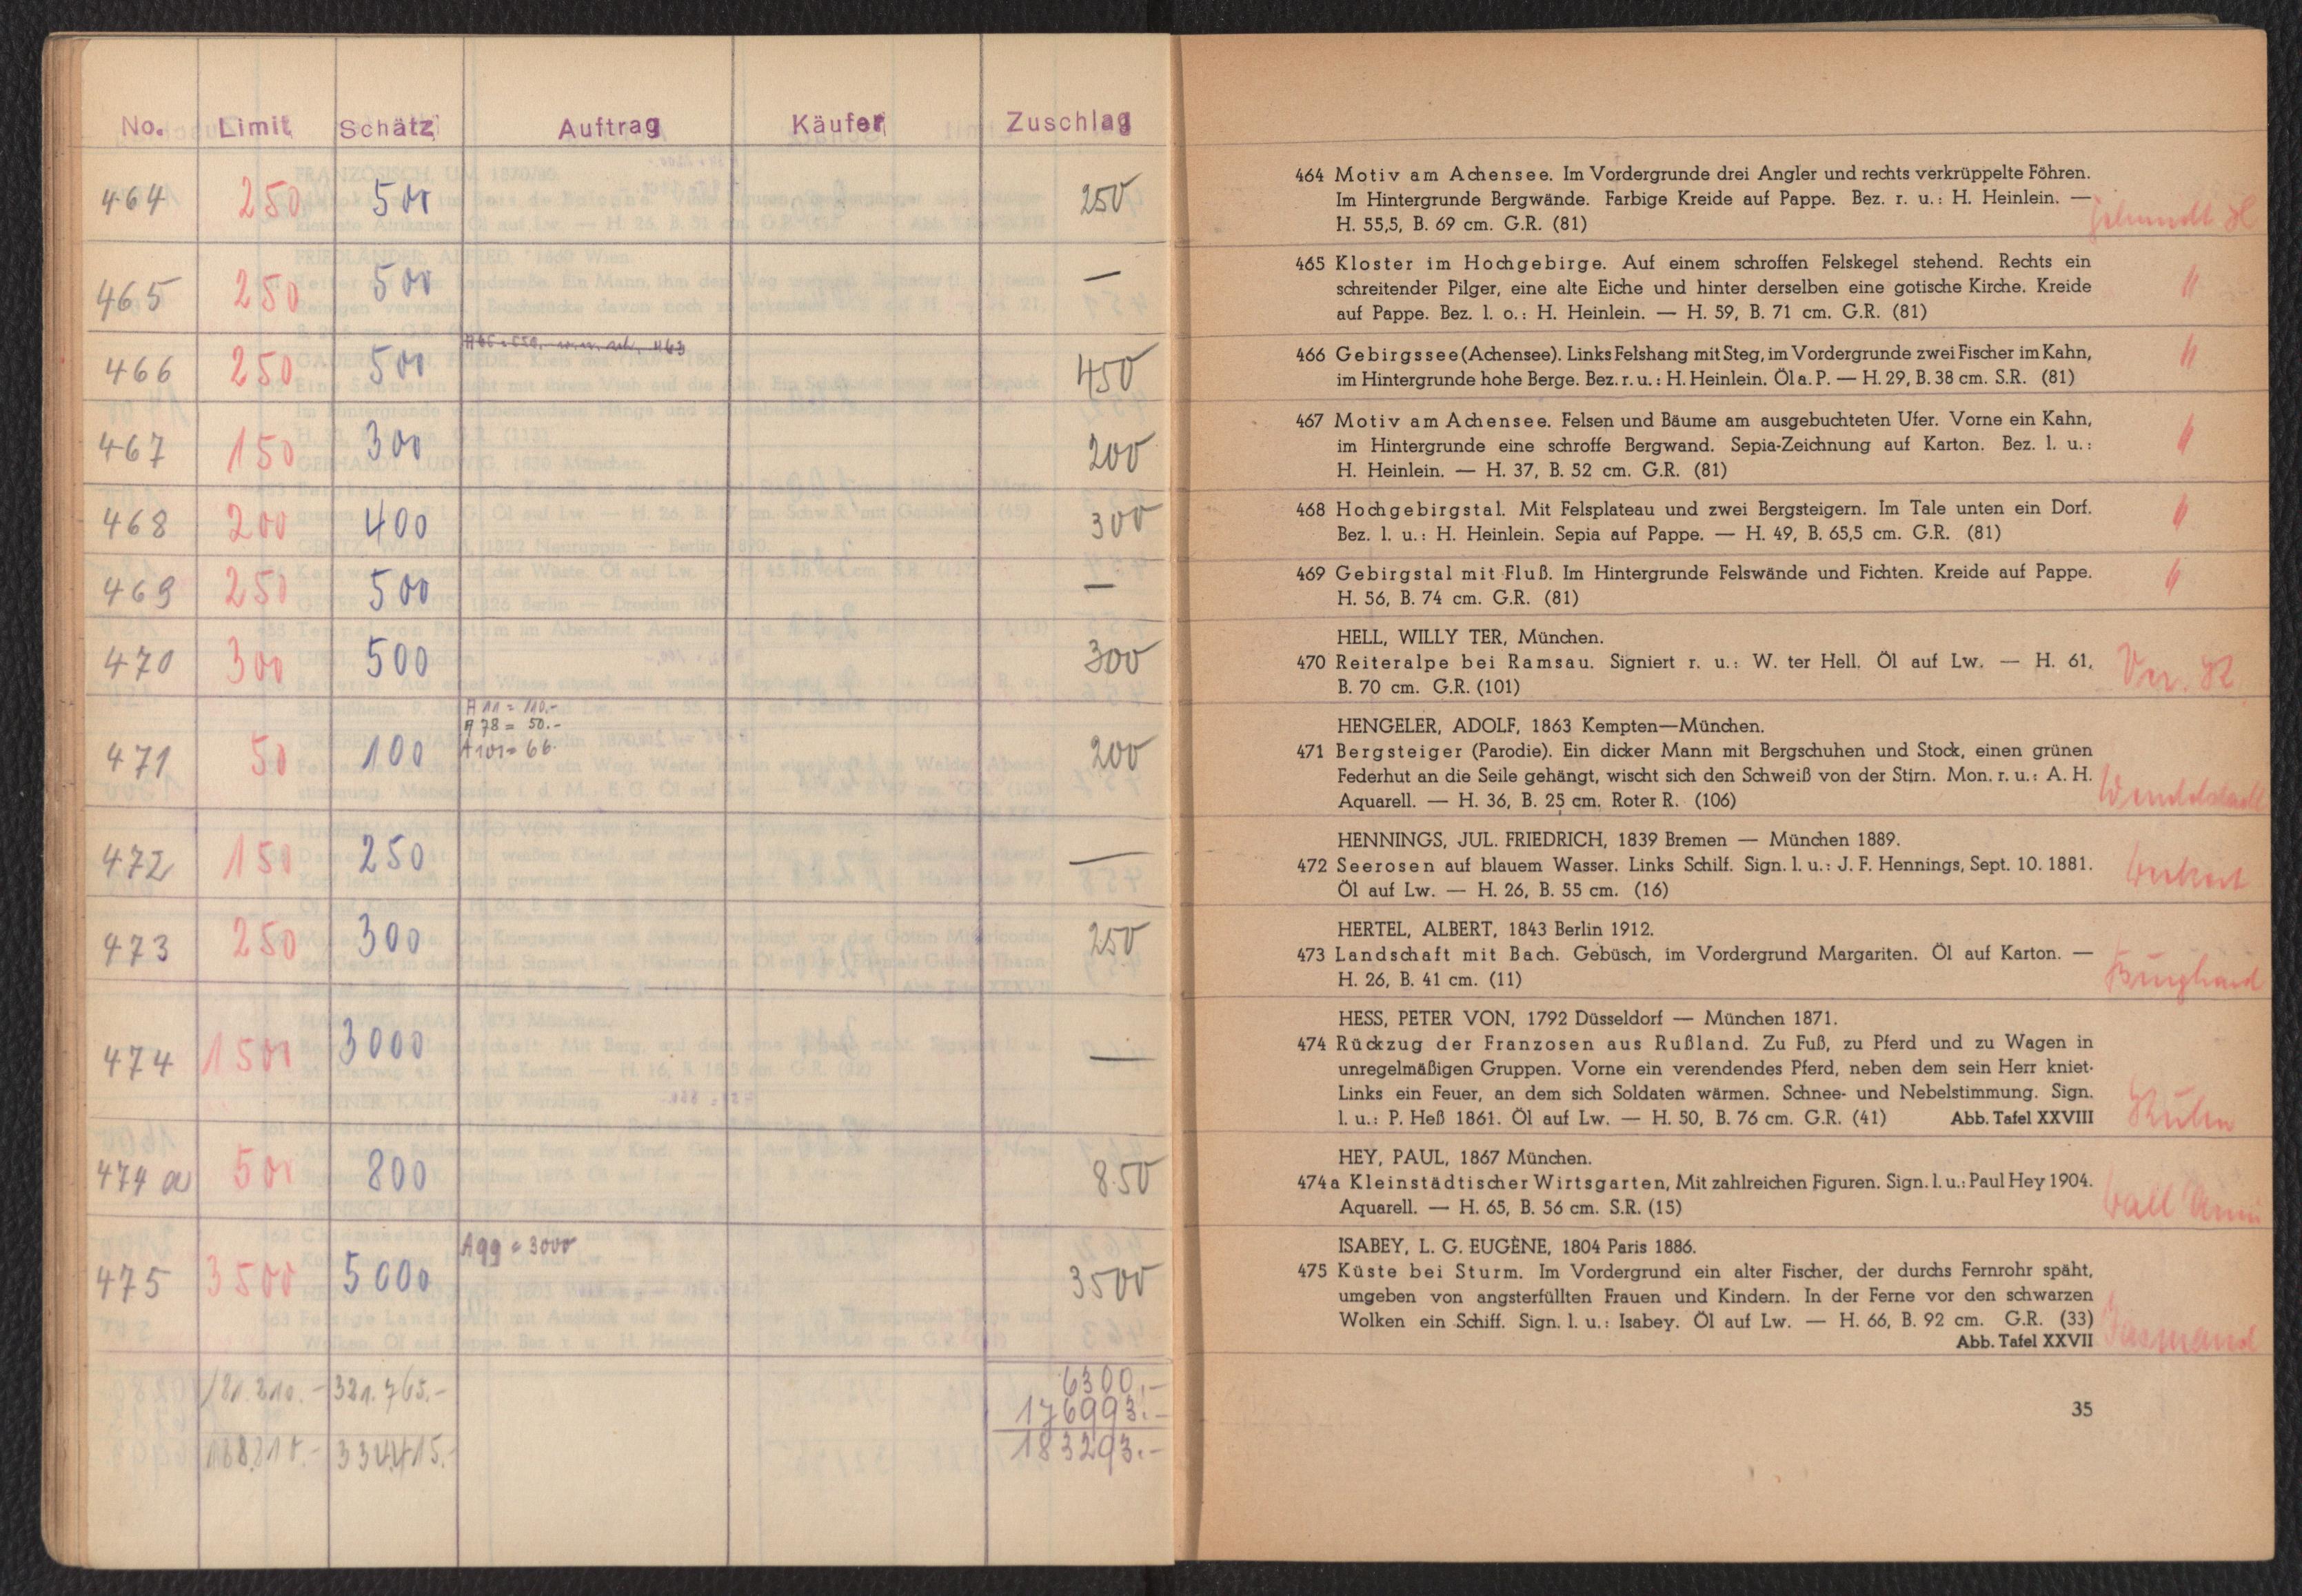 No. Limit Schätz Auftrag Käufer Zuschlag
464 250 500 250
465 250 500 —
466 250 500 450
467 150 300 200
468 200 400 300
469 250 500 —
470 300 500 300
A 11 = 110.-
A 78 = 50.-
A 101 = 66.
471 50 100 200
472 150 250 —
473 250 300 250
474 1500 3000 —
474 a 500 800 850
A 99 = 3000
475 3500 5000 3500
181.210.- 321.765.- 6300.-
176993.-
334415.- 183293.-
464 Motiv am Achensee. Im Vordergrunde drei Angler und rechts verkrüppelte Föhren.
Im Hintergrunde Bergwände. Farbige Kreide auf Pappe. Bez. r. u.: H. Heinlein. —
H. 55,5, B. 69 cm. G.R. (81)
465 Kloster im Hochgebirge. Auf einem schroffen Felskegel stehend. Rechts ein
schreitender Pilger, eine alte Eiche und hinter derselben eine gotische Kirche. Kreide
auf Pappe. Bez. l. o.: H. Heinlein. — H. 59, B. 71 cm. G.R. (81)
466 Gebirgssee (Achensee). Links Felshang mit Steg, im Vordergrunde zwei Fischer im Kahn,
im Hintergrunde hohe Berge. Bez. r. u.: H. Heinlein. Öl a. P. — H. 29, B. 38 cm. S.R. (81)
467 Motiv am Achensee. Felsen und Bäume am ausgebuchteten Ufer. Vorne ein Kahn,
im Hintergrunde eine schroffe Bergwand. Sepia-Zeichnung auf Karton. Bez. l. u.:
H. Heinlein. — H. 37, B. 52 cm. G.R. (81)
468 Hochgebirgstal. Mit Felsplateau und zwei Bergsteigern. Im Tale unten ein Dorf.
Bez. l. u.: H. Heinlein. Sepia auf Pappe. — H. 49, B. 65,5 cm. G.R. (81)
469 Gebirgstal mit Fluß. Im Hintergrunde Felswände und Fichten. Kreide auf Pappe.
H. 56, B. 74 cm. G.R. (81)
HELL, WILLY TER, München.
470 Reiteralpe bei Ramsau. Signiert r. u.: W. ter Hell. Öl auf Lw. — H. 61,
B. 70 cm. G.R. (101)
HENGELER, ADOLF, 1863 Kempten—München.
471 Bergsteiger (Parodie). Ein dicker Mann mit Bergschuhen und Stock, einen grünen
Federhut an die Seile gehängt, wischt sich den Schweiß von der Stirn. Mon. r. u.: A. H.
Aquarell. — H. 36, B. 25 cm. Roter R. (106)
HENNINGS, JUL. FRIEDRICH, 1839 Bremen — München 1889.
472 Seerosen auf blauem Wasser. Links Schilf. Sign. l. u.: J. F. Hennings, Sept. 10. 1881.
Öl auf Lw. — H. 26, B. 55 cm. (16)
HERTEL, ALBERT, 1843 Berlin 1912.
473 Landschaft mit Bach. Gebüsch, im Vordergrund Margariten. Öl auf Karton. —
H. 26, B. 41 cm. (11)
HESS, PETER VON, 1792 Düsseldorf — München 1871.
474 Rückzug der Franzosen aus Rußland. Zu Fuß, zu Pferd und zu Wagen in
unregelmäßigen Gruppen. Vorne ein verendendes Pferd, neben dem sein Herr kniet.
Links ein Feuer, an dem sich Soldaten wärmen. Schnee- und Nebelstimmung. Sign.
l. u.: P. Heß 1861. Öl auf Lw. — H. 50, B. 76 cm. G.R. (41) Abb. Tafel XXVIII
HEY, PAUL, 1867 München.
474a Kleinstädtischer Wirtsgarten, Mit zahlreichen Figuren. Sign. l. u.: Paul Hey 1904.
Aquarell. — H. 65, B. 56 cm. S.R. (15)
ISABEY, L. G. EUGÈNE, 1804 Paris 1886.
475 Küste bei Sturm. Im Vordergrund ein alter Fischer, der durchs Fernrohr späht,
umgeben von angsterfüllten Frauen und Kindern. In der Ferne vor den schwarzen
Wolken ein Schiff. Sign. l. u.: Isabey. Öl auf Lw. — H. 66, B. 92 cm. G.R. (33)
Abb. Tafel XXVII
35